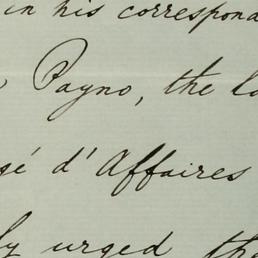 in his corresponda
Payno, the la
gé d'Affaires
ly urged the